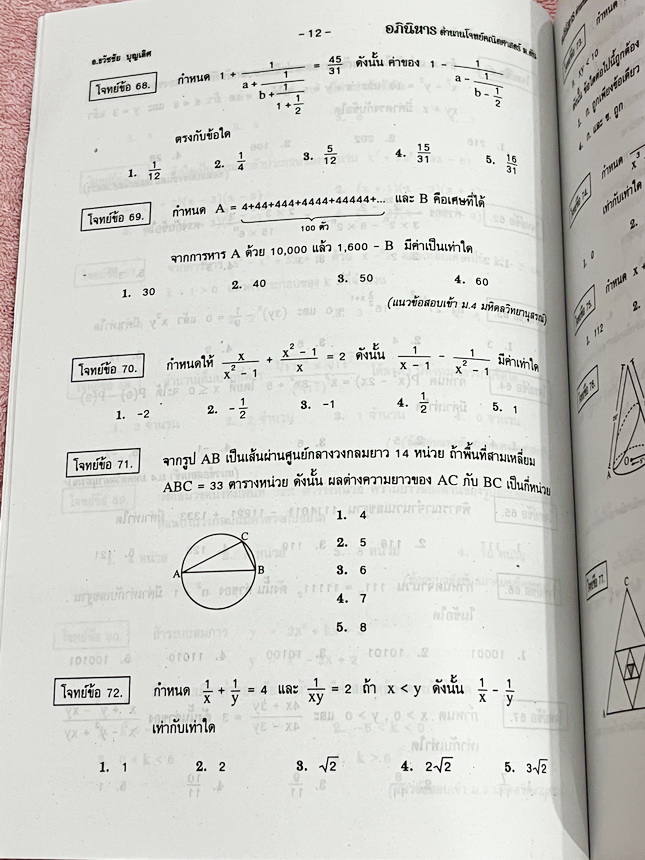 - 12 -
อภินิหาร ตำนานโจทย์คณิตศาสตร์ ม.ต้น
อ.ธวัชชัย บุญเลิศ
โจทย์ข้อ 68. กำหนด 1 + 1/(a + 1/(b + 1/(1 + 1/2))) = 45/31 ดังนั้น ค่าของ 1 - 1/(a - 1/(b - 1/2))
ตรงกับข้อใด
1. 1/12 2. 1/4 3. 5/12 4. 15/31 5. 16/31
โจทย์ข้อ 69. กำหนด A = 4+44+444+4444+44444+... และ B คือเศษที่ได้
100 ตัว
จากการหาร A ด้วย 10,000 แล้ว 1,600 - B มีค่าเป็นเท่าใด
1. 30 2. 40 3. 50 4. 60
(แนวข้อสอบเข้า ม.4 มหิดลวิทยานุสรณ์)
โจทย์ข้อ 70. กำหนดให้ x/(x² - 1) + (x² - 1)/x = 2 ดังนั้น 1/(x - 1) - 1/(x² - 1) มีค่าเท่าใด
1. -2 2. -1/2 3. -1 4. 1/2 5. 1
โจทย์ข้อ 71. จากรูป AB เป็นเส้นผ่านศูนย์กลางวงกลมยาว 14 หน่วย ถ้าพื้นที่สามเหลี่ยม
ABC = 33 ตารางหน่วย ดังนั้น ผลต่างความยาวของ AC กับ BC เป็นกี่หน่วย
1. 4
2. 5
3. 6
4. 7
5. 8
C
A
B
โจทย์ข้อ 72. กำหนด 1/x + 1/y = 4 และ 1/xy = 2 ถ้า x < y ดังนั้น 1/x - 1/y
เท่ากับเท่าใด
1. 1 2. 2 3. √2 4. 2√2 5. 3√2
โจทย์ข้อ 73.
xy < 10
1. ก. ถูกเพียงข้อเดียว
4. ก. และ ข. ถูก
โจทย์ข้อ 74. กำหนด
เท่ากับเท่าใด
1. 0
2.
โจทย์ข้อ 75. กำหนด x +
1. 112
2.
โจทย์ข้อ 76.
A
O
โจทย์ข้อ 77.
C
A